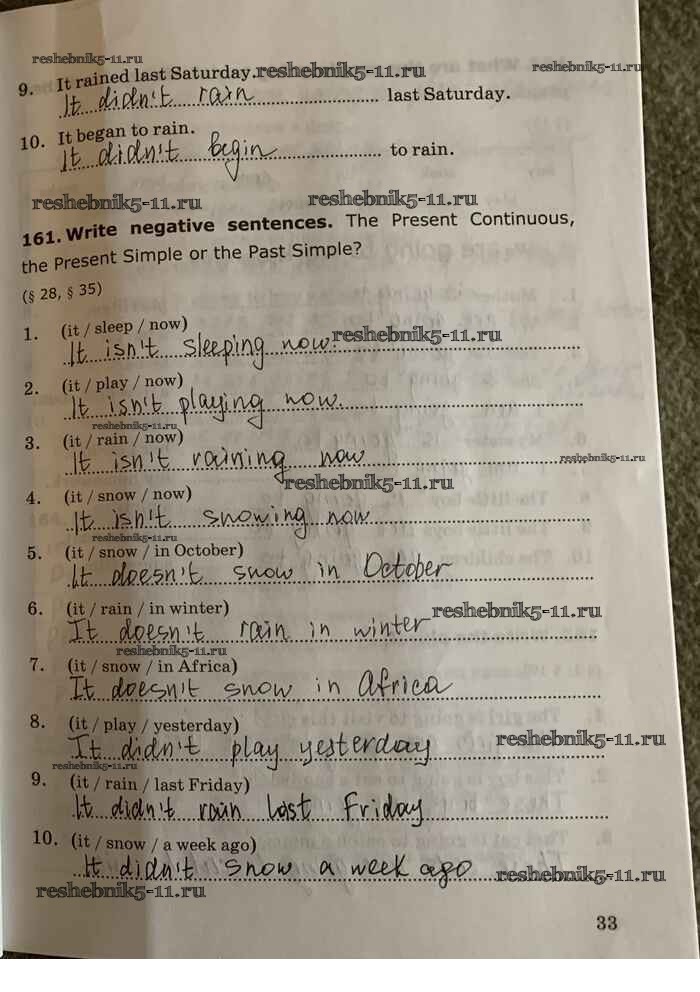 reshebnik5-11.ru
9. It rained last Saturday. reshebnik5-11.ru reshebnik5-11.ru
It didn't rain last Saturday.
10. It began to rain.
It didn't begin to rain.
reshebnik5-11.ru reshebnik5-11.ru
161. Write negative sentences. The Present Continuous,
the Present Simple or the Past Simple?
(§ 28, § 35)
1. (it / sleep / now) reshebnik5-11.ru
It isn't sleeping now.
2. (it / play / now)
It isn't playing now.
reshebnik5-11.ru
3. (it / rain / now)
It isn't raining now reshebnik5-11.ru
reshebnik5-11.ru
4. (it / snow / now)
It isn't snowing now
reshebnik5-11.ru
5. (it / snow / in October)
It doesn't snow in October
6. (it / rain / in winter) reshebnik5-11.ru
It doesn't rain in winter
reshebnik5-11.ru
7. (it / snow / in Africa)
It doesn't snow in Africa
8. (it / play / yesterday)
It didn't play yesterday reshebnik5-11.ru
reshebnik5-11.ru
9. (it / rain / last Friday)
It didn't rain last Friday
10. (it / snow / a week ago)
It didn't snow a week ago reshebnik5-11.ru
reshebnik5-11.ru
33